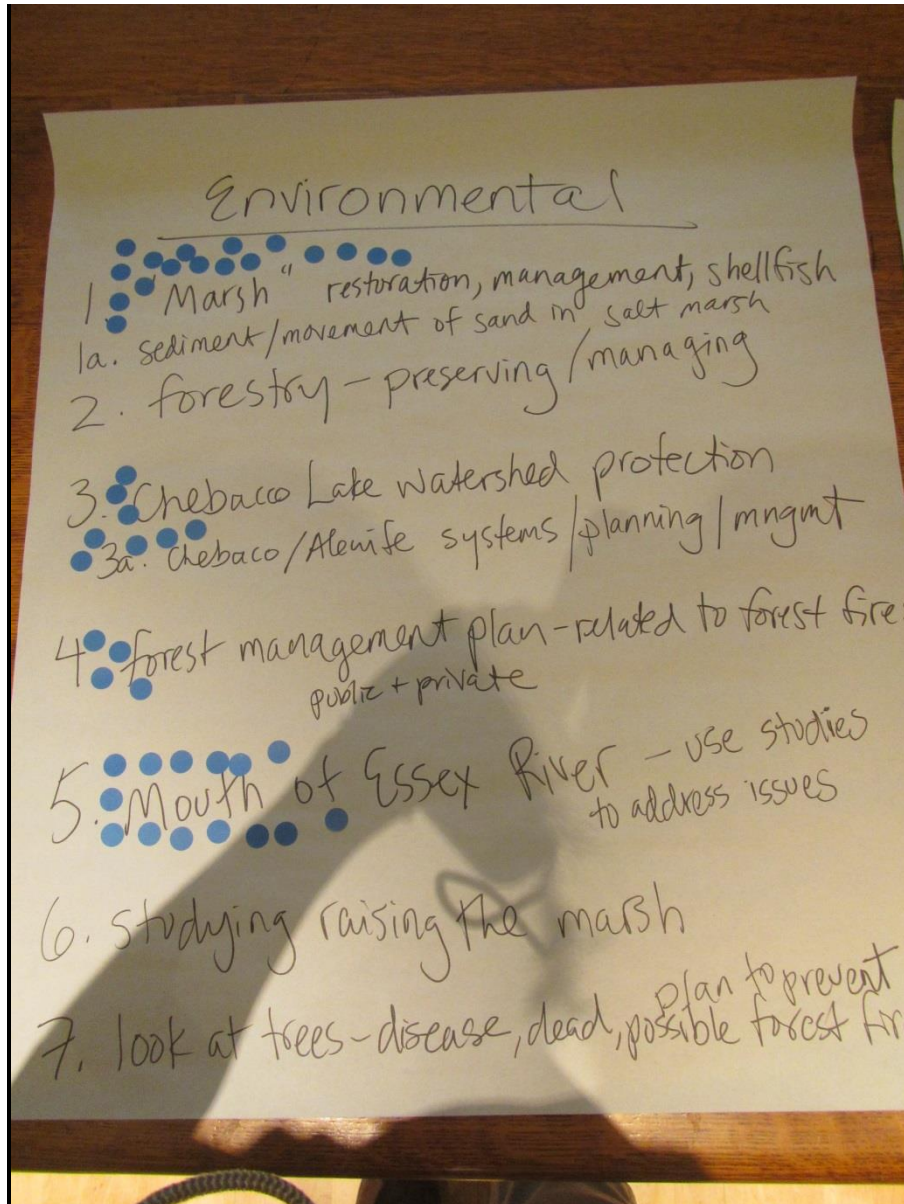 Environmental
1. "Marsh" restoration, management, shellfish
1a. sediment/movement of sand in salt marsh
2. forestry - preserving/managing
3. Chebacco Lake watershed protection
3a. Chebaco/Alewife systems/planning/mngmt
4. forest management plan-related to forest fire
public + private
5. Mouth of Essex River - use studies
to address issues
6. studying raising the marsh
plan to prevent
7. look at trees-disease, dead, possible forest fir